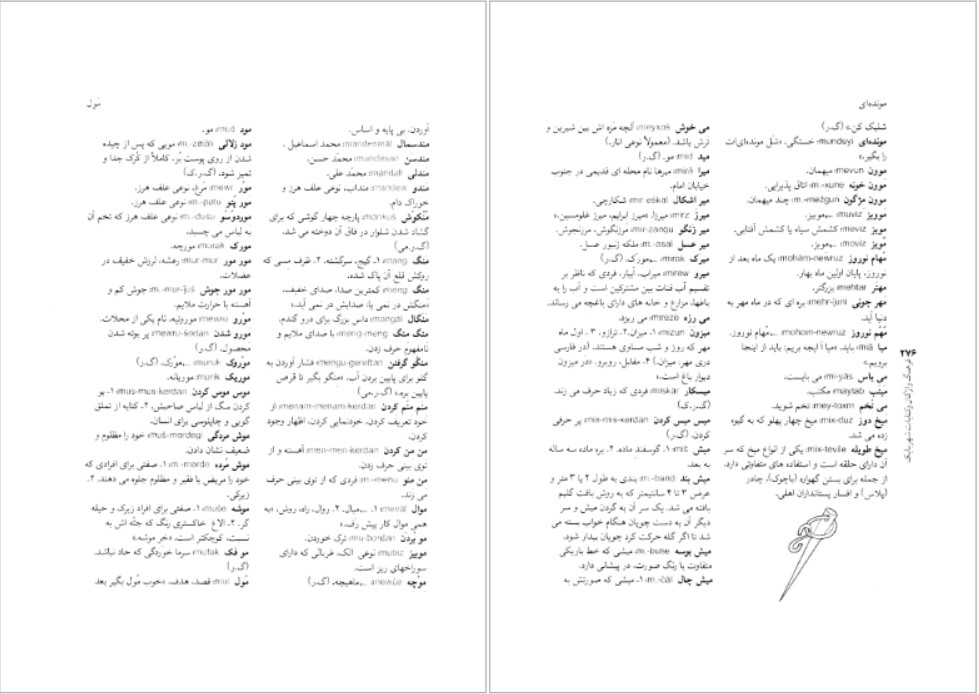 مُول
آوردن. بی پایه و اساس.
مندسمال mandesmāl: محمد اسماعیل.
مندسن mandasan: محمّد حسن.
مندلی mandali: محمّد علی.
مندو mandew: منداب، نوعی علف هرز و
خوراک دام.
منگوش monkuš: پارچه چهار گوشی که برای
گشاد شدن شلوار در فاق آن دوخته می شد.
(گ.ر.می)
منگ mang: ۱. گیج، سرگشته. ۲. ظرف مسی که
روکش قلع آن پاک شده.
منگ meng: کمترین صدا، صدای خفیف.
«منگش در نمی یا: صدایش در نمی آید.»
منگال mangāl: داس بزرگ برای درو گندم.
منگ منگ meng-meng: با صدای ملایم و
نامفهوم حرف زدن.
منگو گرفتن mengu-gereftan: فشار آوردن به
گلو برای پایین بردن آب. «منگو بگیر تا قرص
پایین بره.» (گ.ر.می)
منم منم کردن menam-menam-kerdan: از
خود تعریف کردن، خودنمایی کردن، اظهار وجود
کردن.
من من کردن men-men-kerdan: آهسته و از
توی بینی حرف زدن.
من منو m.-menu: فردی که از توی بینی حرف
می زند.
موال mevāl: ۱. ←میال. ۲. روال، راه، روش. «به
همی موال کار پیش رف.»
مو بُردن mu-bordan: ترک خوردن.
موبیز mubiz: نوعی الک، غربالی که دارای
سوراخهای ریز است.
موچه mewče: ←ماهیچه. (گ.ر)
مود mud: مو.
مود زلالی m.-zelāli: مویی که پس از چیده
شدن از روی پوست بُز، کاملاً از کُرک جدا و
تمیز شود. (گ.ر.ک)
مور mewr: مَرغ، نوعی علف هرز.
مور پتو m.-petu: نوعی علف هرز.
موردوسو m.-dusu: نوعی علف هرز که تخم آن
به لباس می چسبد.
مورک murak: مورچه.
مور مور mur-mur: رعشه، لرزش خفیف در
عضلات.
مور مور جوش m.-mur-juš: جوش کم و
آهسته با حرارت ملایم.
مورو mewru: موروئیه، نام یکی از محلات.
مورو شدن mewru-šedan: پر بوته شدن
محصول. (گ.ر)
موروک muruk: ←مورک. (گ.ر)
موریک murik: موریانه.
موس موس کردن mus-mus-kerdan: ۱. بو
کردن سگ از لباس صاحبش. ۲. کنایه از تملق
گویی و چاپلوسی برای انسان.
موش مردگی muš-mordegi: خود را مظلوم و
ضعیف نشان دادن.
موش مُرده m.-morde: ۱. صفتی برای افرادی که
خود را مریض یا فقیر و مظلوم جلوه می دهند. ۲.
زیرکی.
موشه muše: ۱. صفتی برای افراد زیرک و حیله
گر. ۲. الاغ خاکستری رنگ که جثه اش به
نسبت، کوچکتر است. «خر موشه.»
مو فک mufak: سرما خوردگی که حاد نباشد.
(گ.ر)
مُول mul: قصد، هدف. «خوب مول بگیر بعد
مونده‌ای
شلیک کن.» (گ.ر)
مونده‌ای mundeyi: خستگی. «شَل مونده‌ای‌ات
را بگیر.»
موون mevun: میهمان.
موون خونه m.-xune: اتاق پذیرایی.
موون مژگون m.-mežgun: چند میهمان.
موویز muviz: ←مویز.
مویز meviz: کشمش سیاه یا کشمش آفتابی.
مُویز moviz: ←مویز.
مُهام نوروز mohām-newruz: یک ماه بعد از
نوروز، پایان اولین ماه بهار.
مهتر mehtar: بزرگتر.
مهر جونی mehr-juni: بره ای که در ماه مهر به
دنیا آید.
مُهُم نوروز mohom-newruz: ←مُهام نوروز.
میا miā: باید. «میا اَ ایجه بریم: باید از اینجا
برویم.»
می یاس mi-yās: می بایست.
میتب maytab: مکتب.
می تُخم mey-toxm: تخم شوید.
میخ دوز mix-duz: میخ چهار پهلو که به گیوه
زده می شد.
میخ طویله mix-tevile: یکی از انواع میخ که سر
آن دارای حلقه است و استفاده های متفاوتی دارد.
از جمله برای بستن گهواره (باچوک)، چادر
(پلاس) و افسار پستانداران اهلی.
می خوش meyxoš: آنچه مزه اش بین شیرین و
ترش باشد. (معمولاً نوعی انار.)
مید mid: مو. (گ.ر)
میرا mirā: میرها نام محله ای قدیمی در جنوب
خیابان امام.
میر اشکال mir-eškāl: شکارچی.
میرز mirz: میرزا. «میرز ابرایم، میرز غلومسین.»
میر زنگو mir-zangu: مرزنگوش، مرزنجوش.
میر عسل m.-asal: ملکه زنبور عسل.
میرک mirak: ←مورک. (گ.ر)
میرو mirew: میراب، آبیار، فردی که ناظر بر
تقسیم آب قنات بین مشترکین است و آب را به
باغها، مزارع و خانه های دارای باغچه می رساند.
می رزه mireze: می ریزد.
میزون mizun: ۱. میزان. ۲. ترازو. ۳. اول ماه
مهر که روز و شب مساوی هستند. (در فارسی
دری مهر: میزان.) ۴. مقابل، روبرو. «در میزون
دیوار باغ است.»
میسکار miskār: فردی که زیاد حرف می زند.
(گ.ر.ک)
میس میس کردن mis-mis-kerdan: پر حرفی
کردن. (گ.ر)
میش miš: ۱. گوسفند ماده. ۲. بره ماده سه ساله
به بعد.
میش بند m.-band: بندی به طول ۲ یا ۳ متر و
عرض ۳ تا ۴ سانتیمتر که به روش بافت گلیم
بافته می شد. یک سر آن به گردن میش و سر
دیگر آن به دست چوپان هنگام خواب بسته می
شد تا اگر گله حرکت کرد چوپان بیدار شود.
میش بوسه m.-buse: میشی که خط باریکی
متفاوت با رنگ صورت، در پیشانی دارد.
میش چال m.-čāl: ۱. میشی که صورتش به
۲۷۶
فرهنگ واژگان و کنایات شهربابک